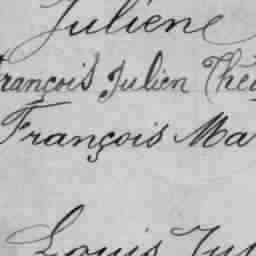 Juliene
François Julien Thé
François Ma
Louis Ju